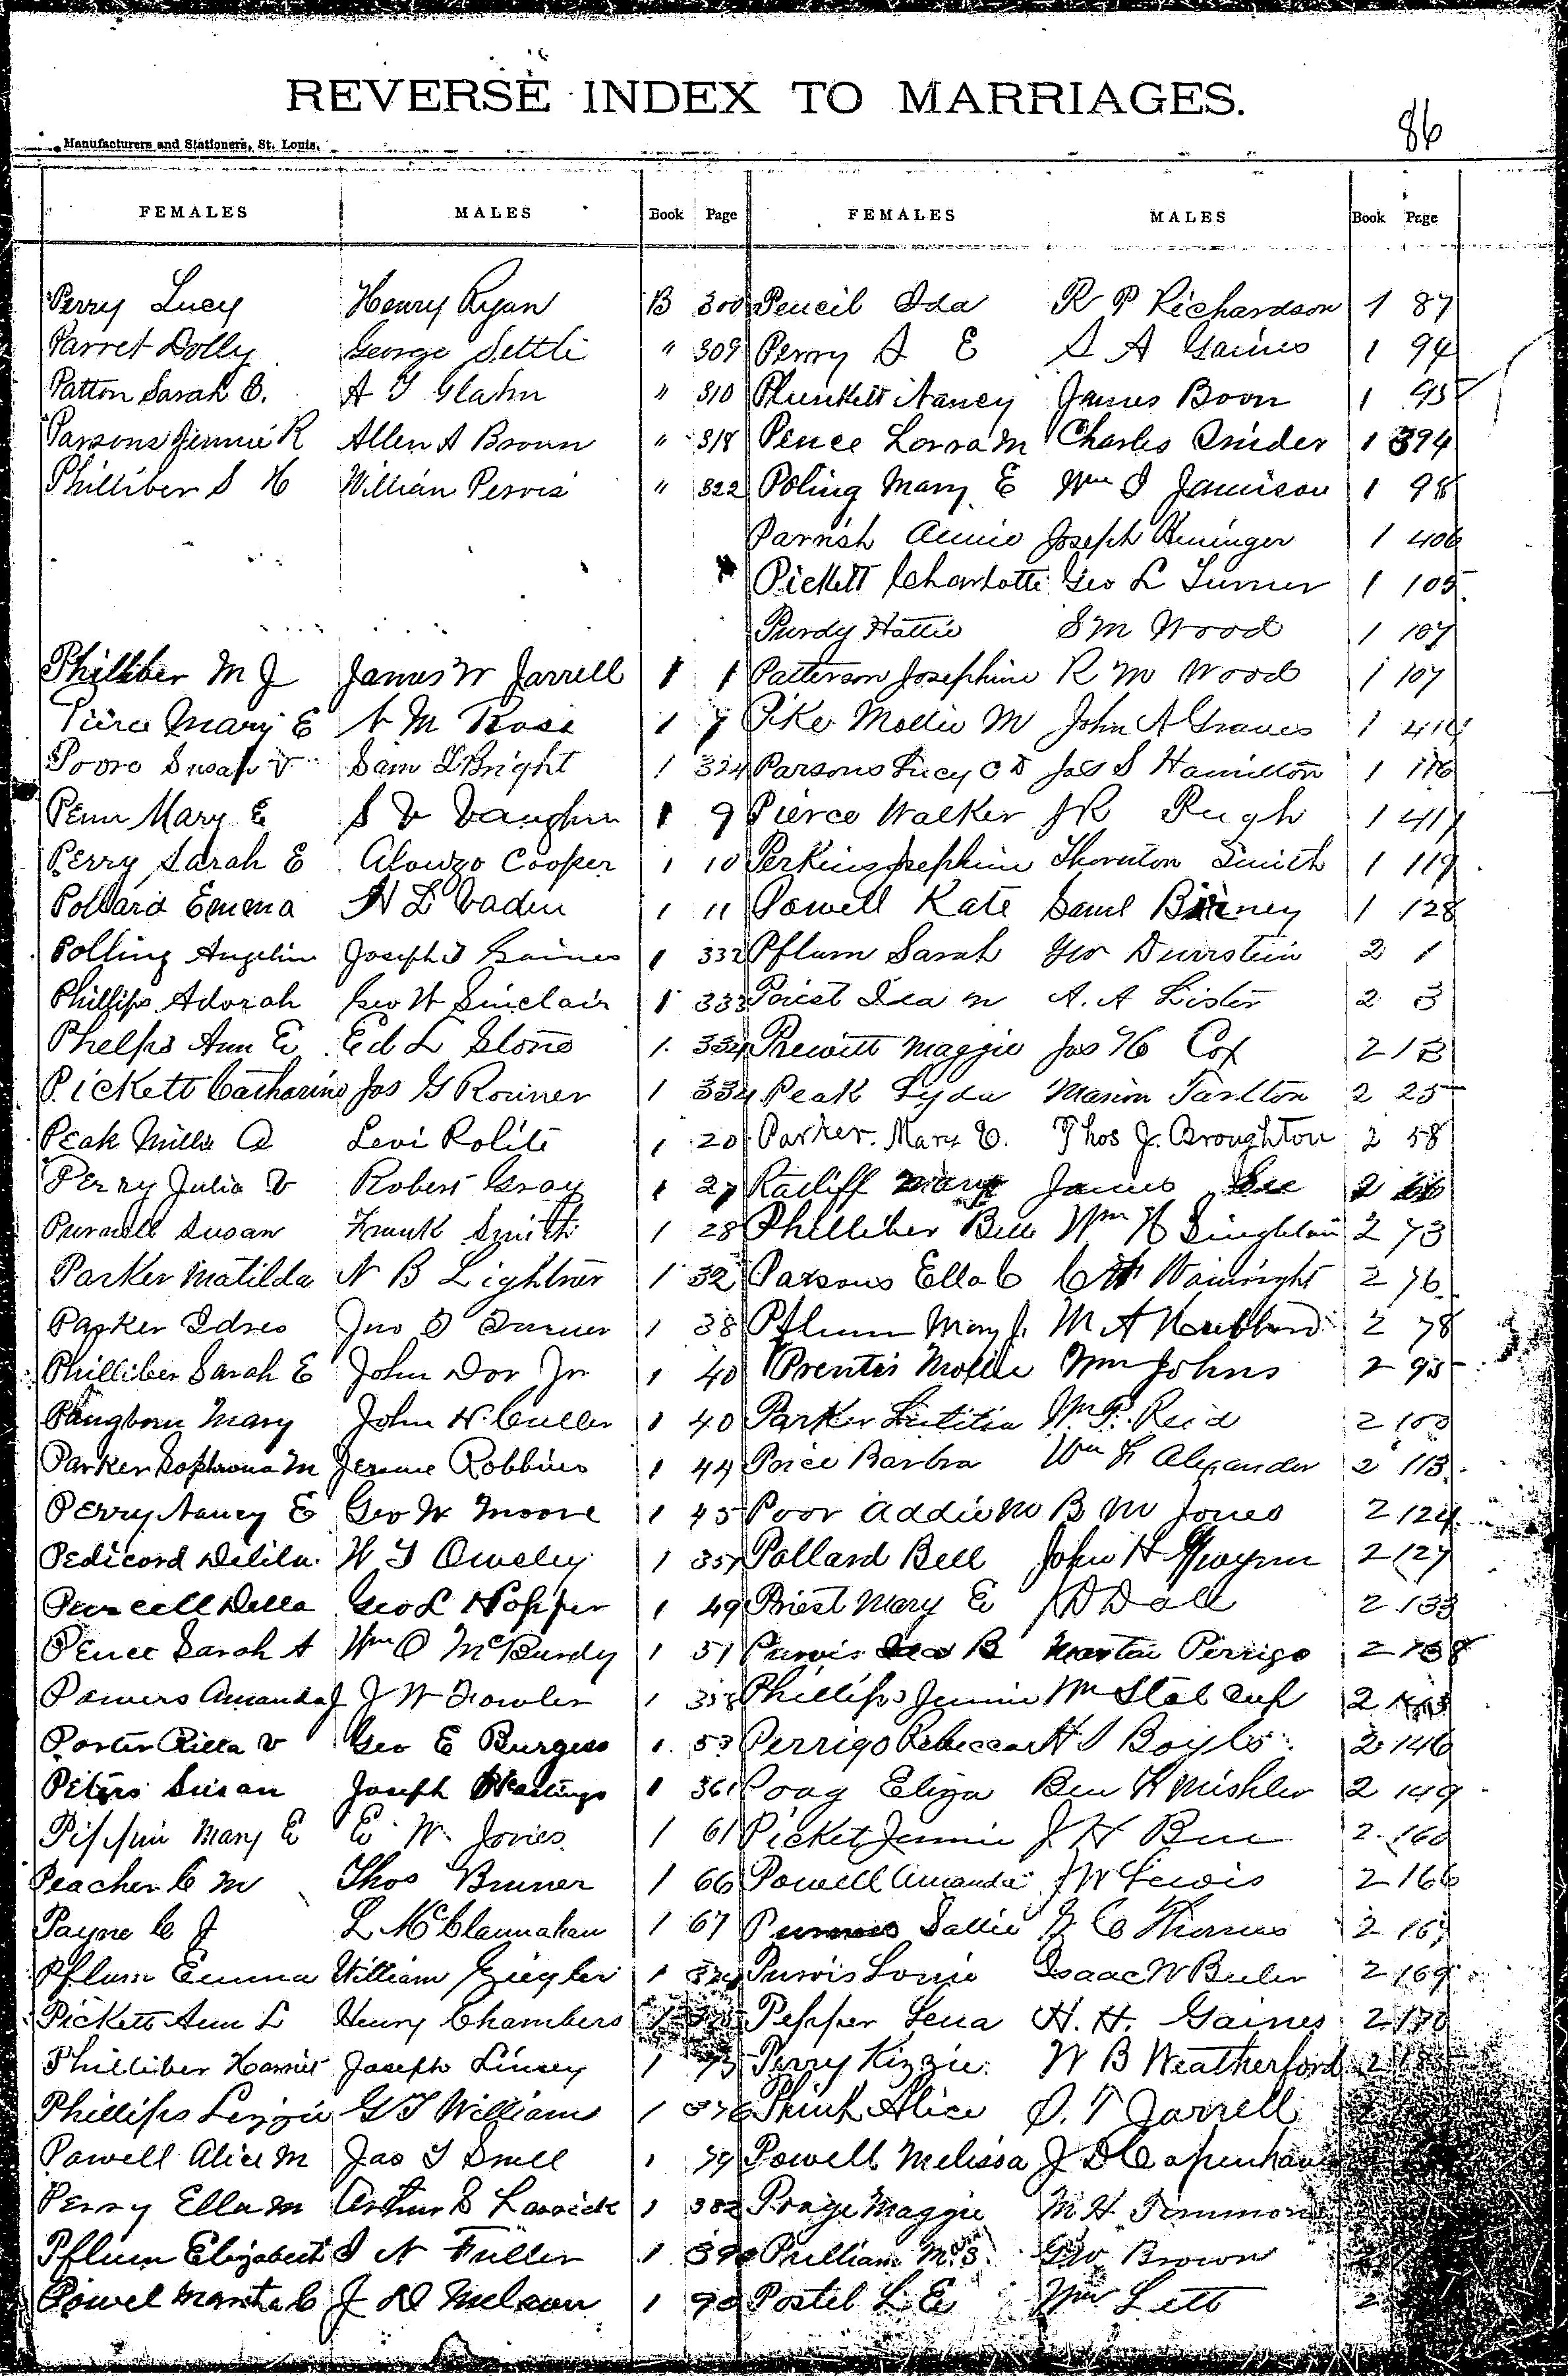 REVERSE INDEX TO MARRIAGES.
86
Manufacturers and Stationers, St. Louis.
FEMALES MALES Book Page FEMALES MALES Book Page
Perry Lucy Henry Ryan B 300 Pencil Ida R P Richardson 1 87
Parret Dolly George Settle " 309 Perry S E S A Gaines 1 94
Patton Sarah E. A T Glahn " 310 Plunkett Nancy James Boon 1 95
Parsons Jennie R Allen A Brown " 318 Pence Lorra M Charles Snider 1 394
Philliber S H William Pervis " 322 Poling Mary E Wm S Jamison 1 98
Parrish Annie Joseph 1 406
Pickett Charlotte Geo L Turner 1 105
Purdy Hattie S M Wood 1 107
Philliber M J James W Jarrell 1 1 Patterson Josephine R M Wood 1 107
Pierce Mary E M Rose 1 7 Pike Mollie M John A Graves 1
Poore Susan V Sam L Bright 1 324 Parsons Lucy C D Jas S Hamilton 1 116
Penn Mary E S V Vaughn 1 9 Pierce Walker J R Pugh 1 417
Perry Sarah E Alonzo Cooper 1 10 Perkins Josephine Thornton Smith 1 119
Pollard Emma H L Vaden 1 11 Powell Kate Saml 1 128
Polling Angelin Joseph T Gaines 1 332 Pflum Sarah Geo Durrstein 2 1
Phillips Adorah Geo W Sinclair 1 333 Priest Ida M A. A Lister 2 3
Phelps Ann E Ed L Stone 1 334 Prewitt Maggie Jas H Cox 2 13
Pickett Catharine Jos G Rouner 1 334 Peak Lyda Marion Tarlton 2 25
Peak Millie A Levi Polite 1 20 Parker Mary E. Thos J. Broughton 2 58
Perry Julia V Robert Gray 1 27 Ratliff Mary James Lee 2
Purnell Susan Frank Smith 1 28 Philliber Belle Wm H Singleton 2 73
Parker Matilda N B Lightner 1 32 Parsons Ella C Wainright 2 76
Parker Jno 1 38 Pflum Mary J. M A Hubbard 2 78
Philliber Sarah E John Dor Jr 1 40 Prentis Mollie Wm Johns 2 95
Pangborn Mary John H. Culler 1 40 Parker Lutitia Wm P. Reid 2 100
Parker Sophrona M Robbins 1 44 Price Barbra Wm F Alexander 2 113
Perry Nancy E Geo W Moore 1 45 Poor Addie M B M Jones 2 124
Pedicord Delila W T Owsley 1 357 Pollard Bell John H Gwynn 2 127
Purcell Della Geo L Hopper 1 49 Priest Mary E Doll 2 133
Pence Sarah A Wm O McBurdy 1 51 Purvis B Martin Perrigo 2 138
Powers Amanda J J W Fowler 1 358 Phillips Jennie Wm Stalcup 2
Porter Rilla V Geo E Burgess 1 53 Perrigo Rebecca Boyles 2 146
Peters Susan Joseph Hastings 1 361 Poag Eliza Ben F Mishler 2 149
Pippin Mary E E W. Jones 1 61 Picket Jennie J H 2 160
Peacher C M Thos Bruner 1 66 Powell Amanda J W Lewis 2 166
Payne C J L McClannahan 1 67 Sallie Thomas 2 167
Pflum Emma William Ziegler 1 Purvis Louie Isaac W Beeler 2 169
Pickett Ann L Henry Chambers 1 Pepper Lena H. H. Gaines 2 170
Philliber Harriet Joseph Linsey 1 73 Perry Kizzie W B Weatherford 2 185
Phillips Lizzie G T Williams 1 376 Alice Jarrell
Powell Alice M Jas T Snell 1 79 Powell Melissa J D Copenhaver
Perry Ella M Arthur S 1 382 Maggie M H Timmons
Pflum Elizabeth N Fuller 1 Pulliam M. S. Geo Brown
Powel C J D Nelson 1 90 Postel L E Wm Lett 2